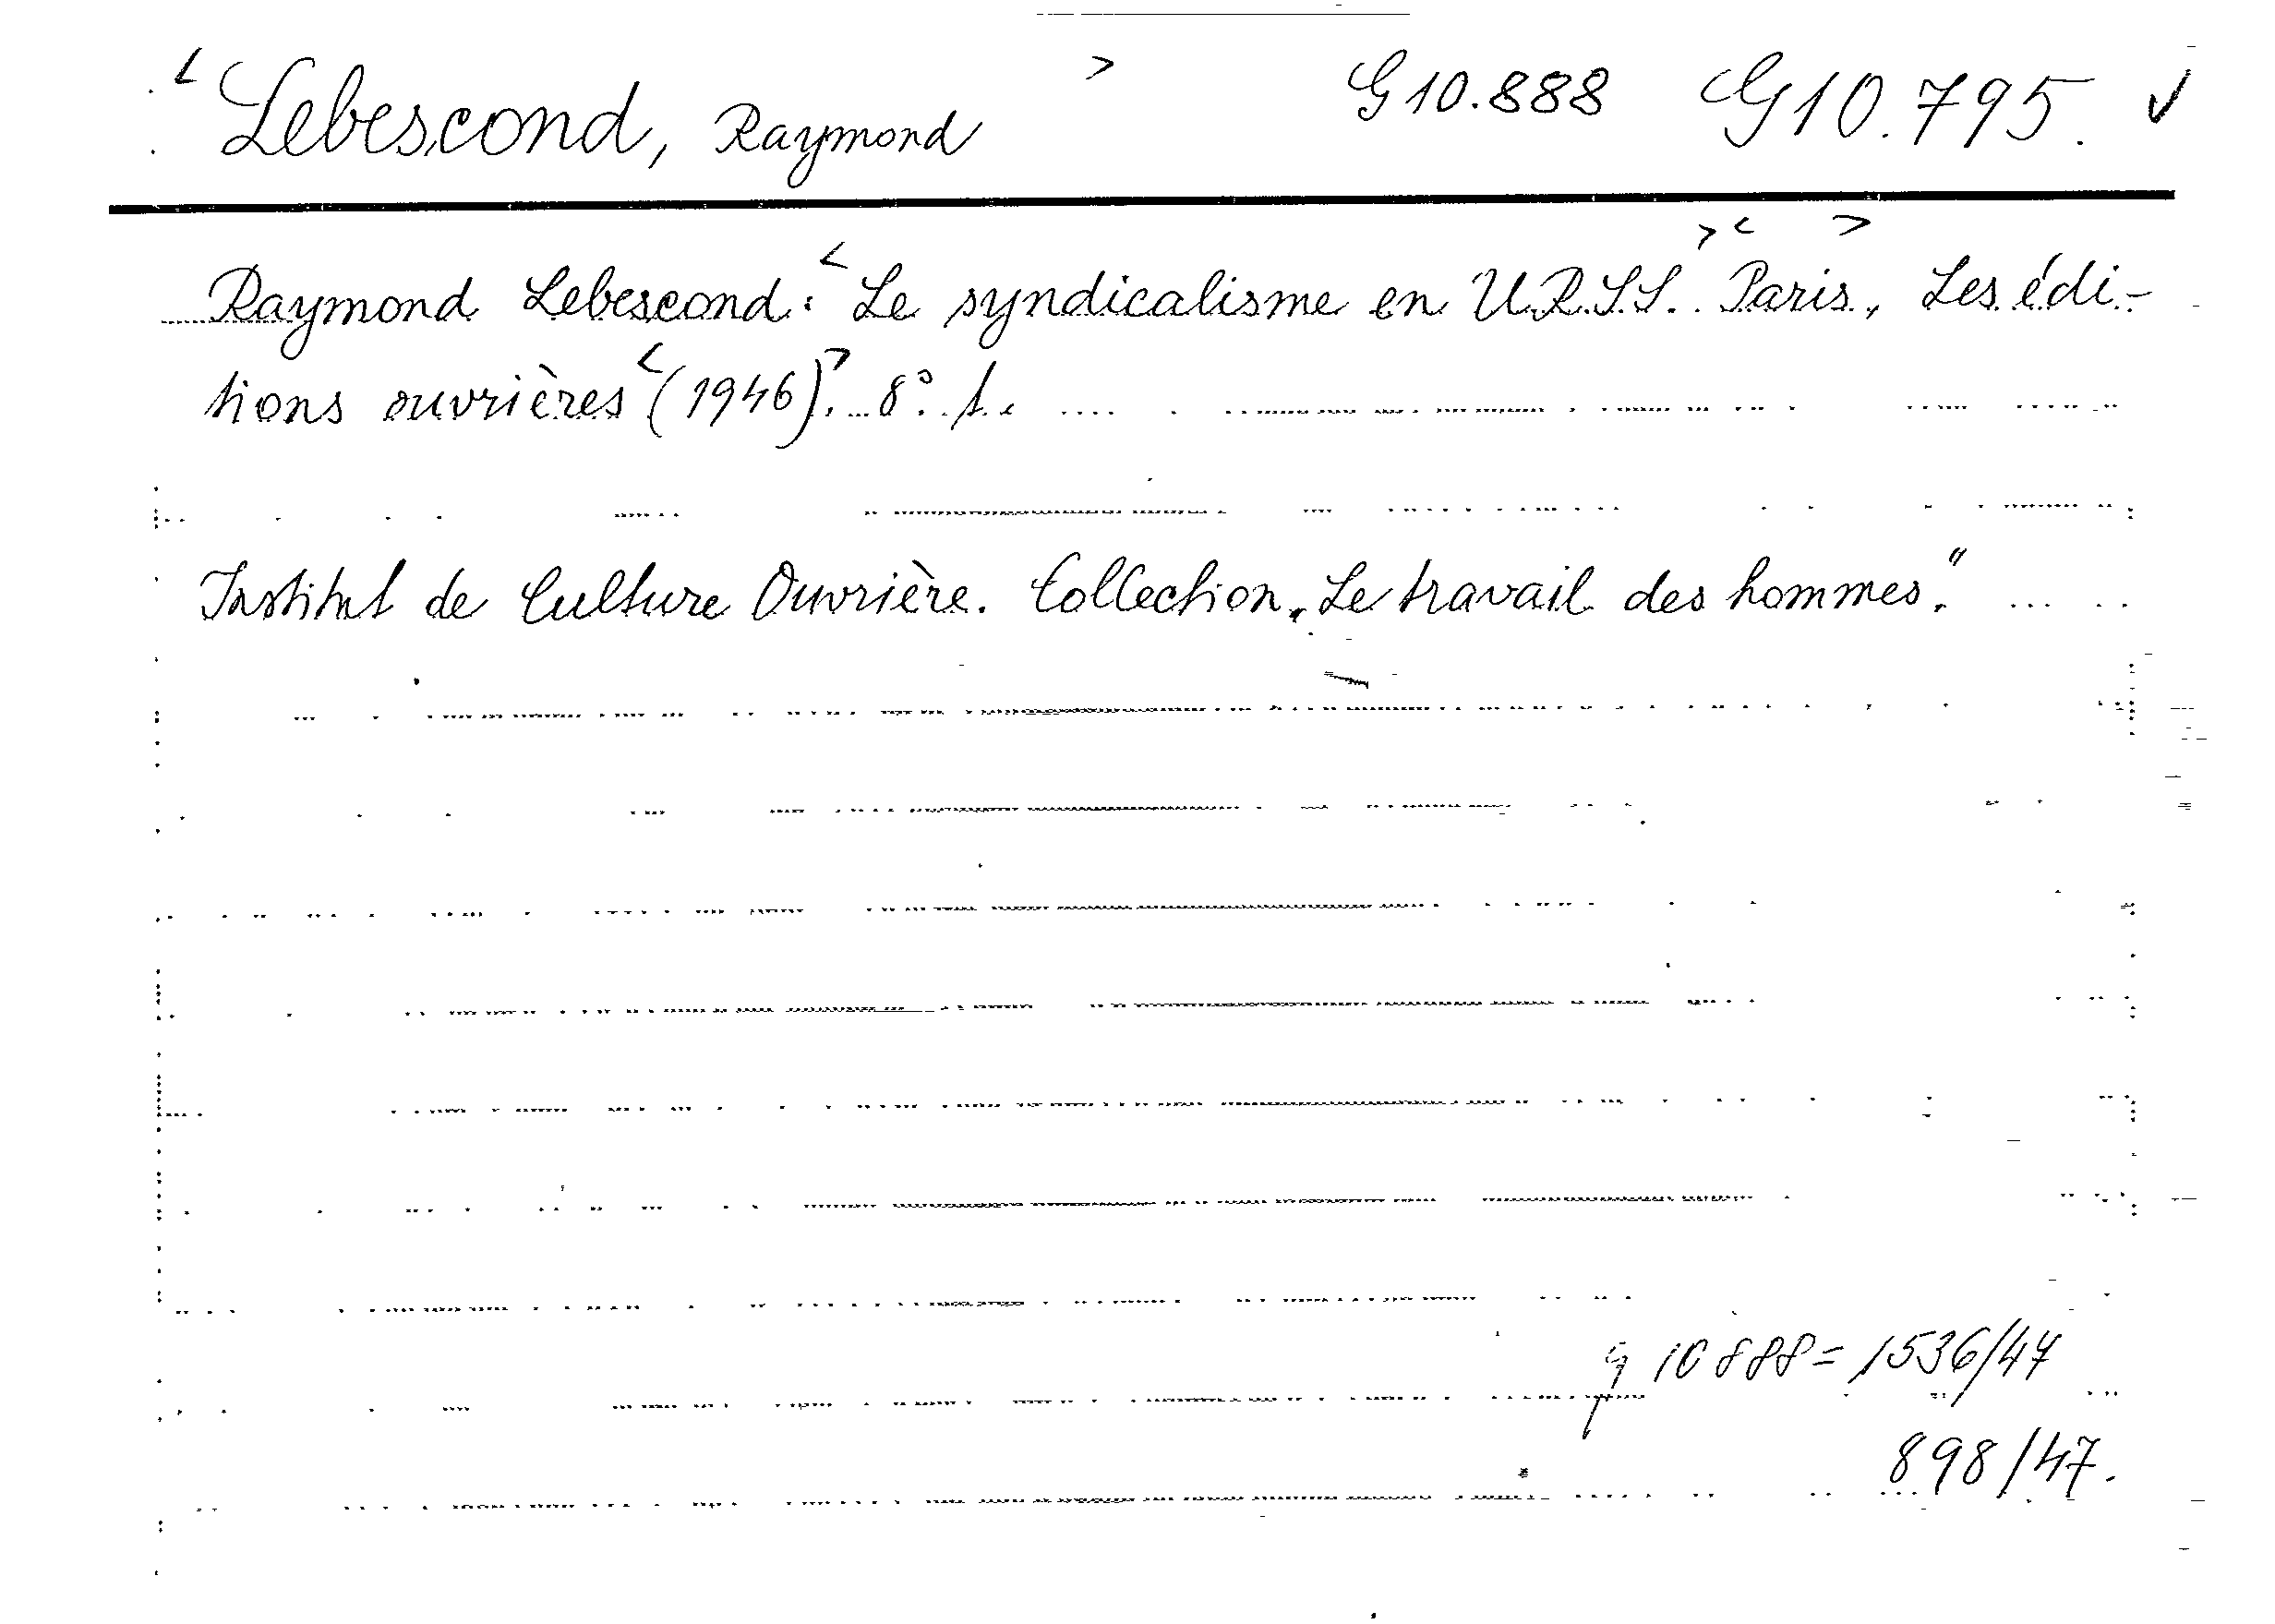 < Lebescond, Raymond > G 10.888 G 10.795. ✓
Raymond Lebescond: < Le syndicalisme en U.R.S.S. > < Paris >, Les édi-
tions ouvrières < (1946) >. 8°. 1.
Institut de Culture Ouvrière. Collection „Le travail des hommes."
G 10888 = 1536/47
898/47.